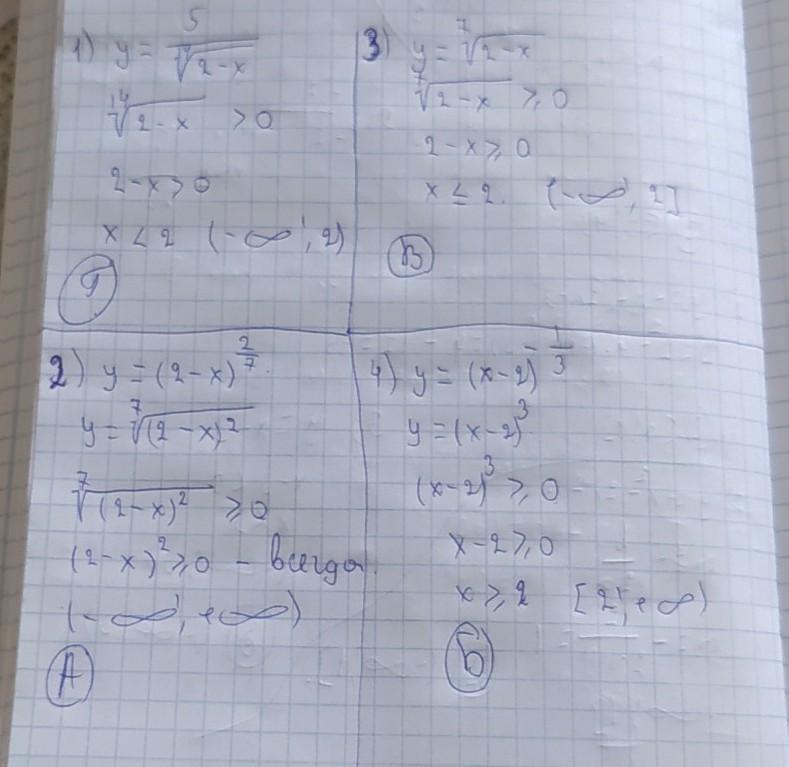 1) y = 5/√(2-x)
¹⁴√(2-x) > 0
2-x > 0
x < 2 (-∞; 2)
Г
3) y = ⁷√(2-x)
⁷√(2-x) ⩾ 0
2-x ⩾ 0
x ≤ 2. (-∞; 2]
В
2) y = (2-x)^(2/7).
y = ⁷√((2-x)²)
⁷√((2-x)²) ⩾ 0
(2-x)² ⩾ 0 - всегда.
(-∞; +∞)
А
4) y = (x-2)^(-1/3)
y = (x-2)³
(x-2)³ ⩾ 0
x-2 ⩾ 0
x ⩾ 2 [2; +∞)
Б